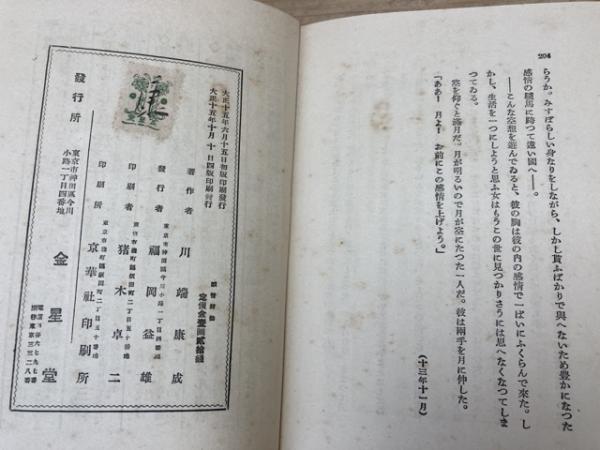 204
らうか。みすぼらしい身なりをしながら、しかし貰ふばかりで與へないため豊かになつた
感情の驢馬に跨つて遠い國へ――。
――こんな空想を遊んでゐると、彼の胸は彼の内の感情で一ぱいにふくらんで來た。し
かし、生活を一つにしようと思ふ女はもうこの世に見つかりさうには思へなくなつてしま
つてゐる。
空を仰ぐと滿月だ。月が明るいので月が空にたつた一人だ。彼は兩手を月に伸した。
「ああ！月よ！お前にこの感情を上げよう。」
（十三年十一月）
大正十五年六月十五日初版印刷發行
大正十五年十月十日四版印刷發行
定價金壹圓貳拾錢
著作者 川端康成
東京市神田區今川小路一丁目四番地
發行者 福岡益雄
東京市麹町區飯田町二丁目五十番地
印刷者 猪木卓二
東京市麹町區飯田町二丁目五十番地
印刷所 京華社印刷所
發行所
東京市神田區今川
小路一丁目四番地
金星堂